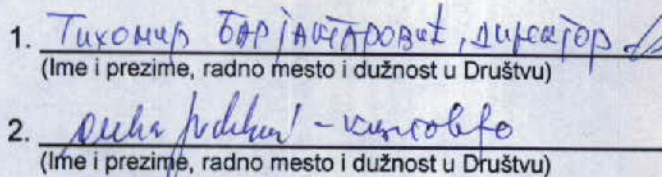 1. Тихомир БАРЈАКТАРОВИЋ, директор
(Ime i prezime, radno mesto i dužnost u Društvu)
2.
(Ime i prezime, radno mesto i dužnost u Društvu)